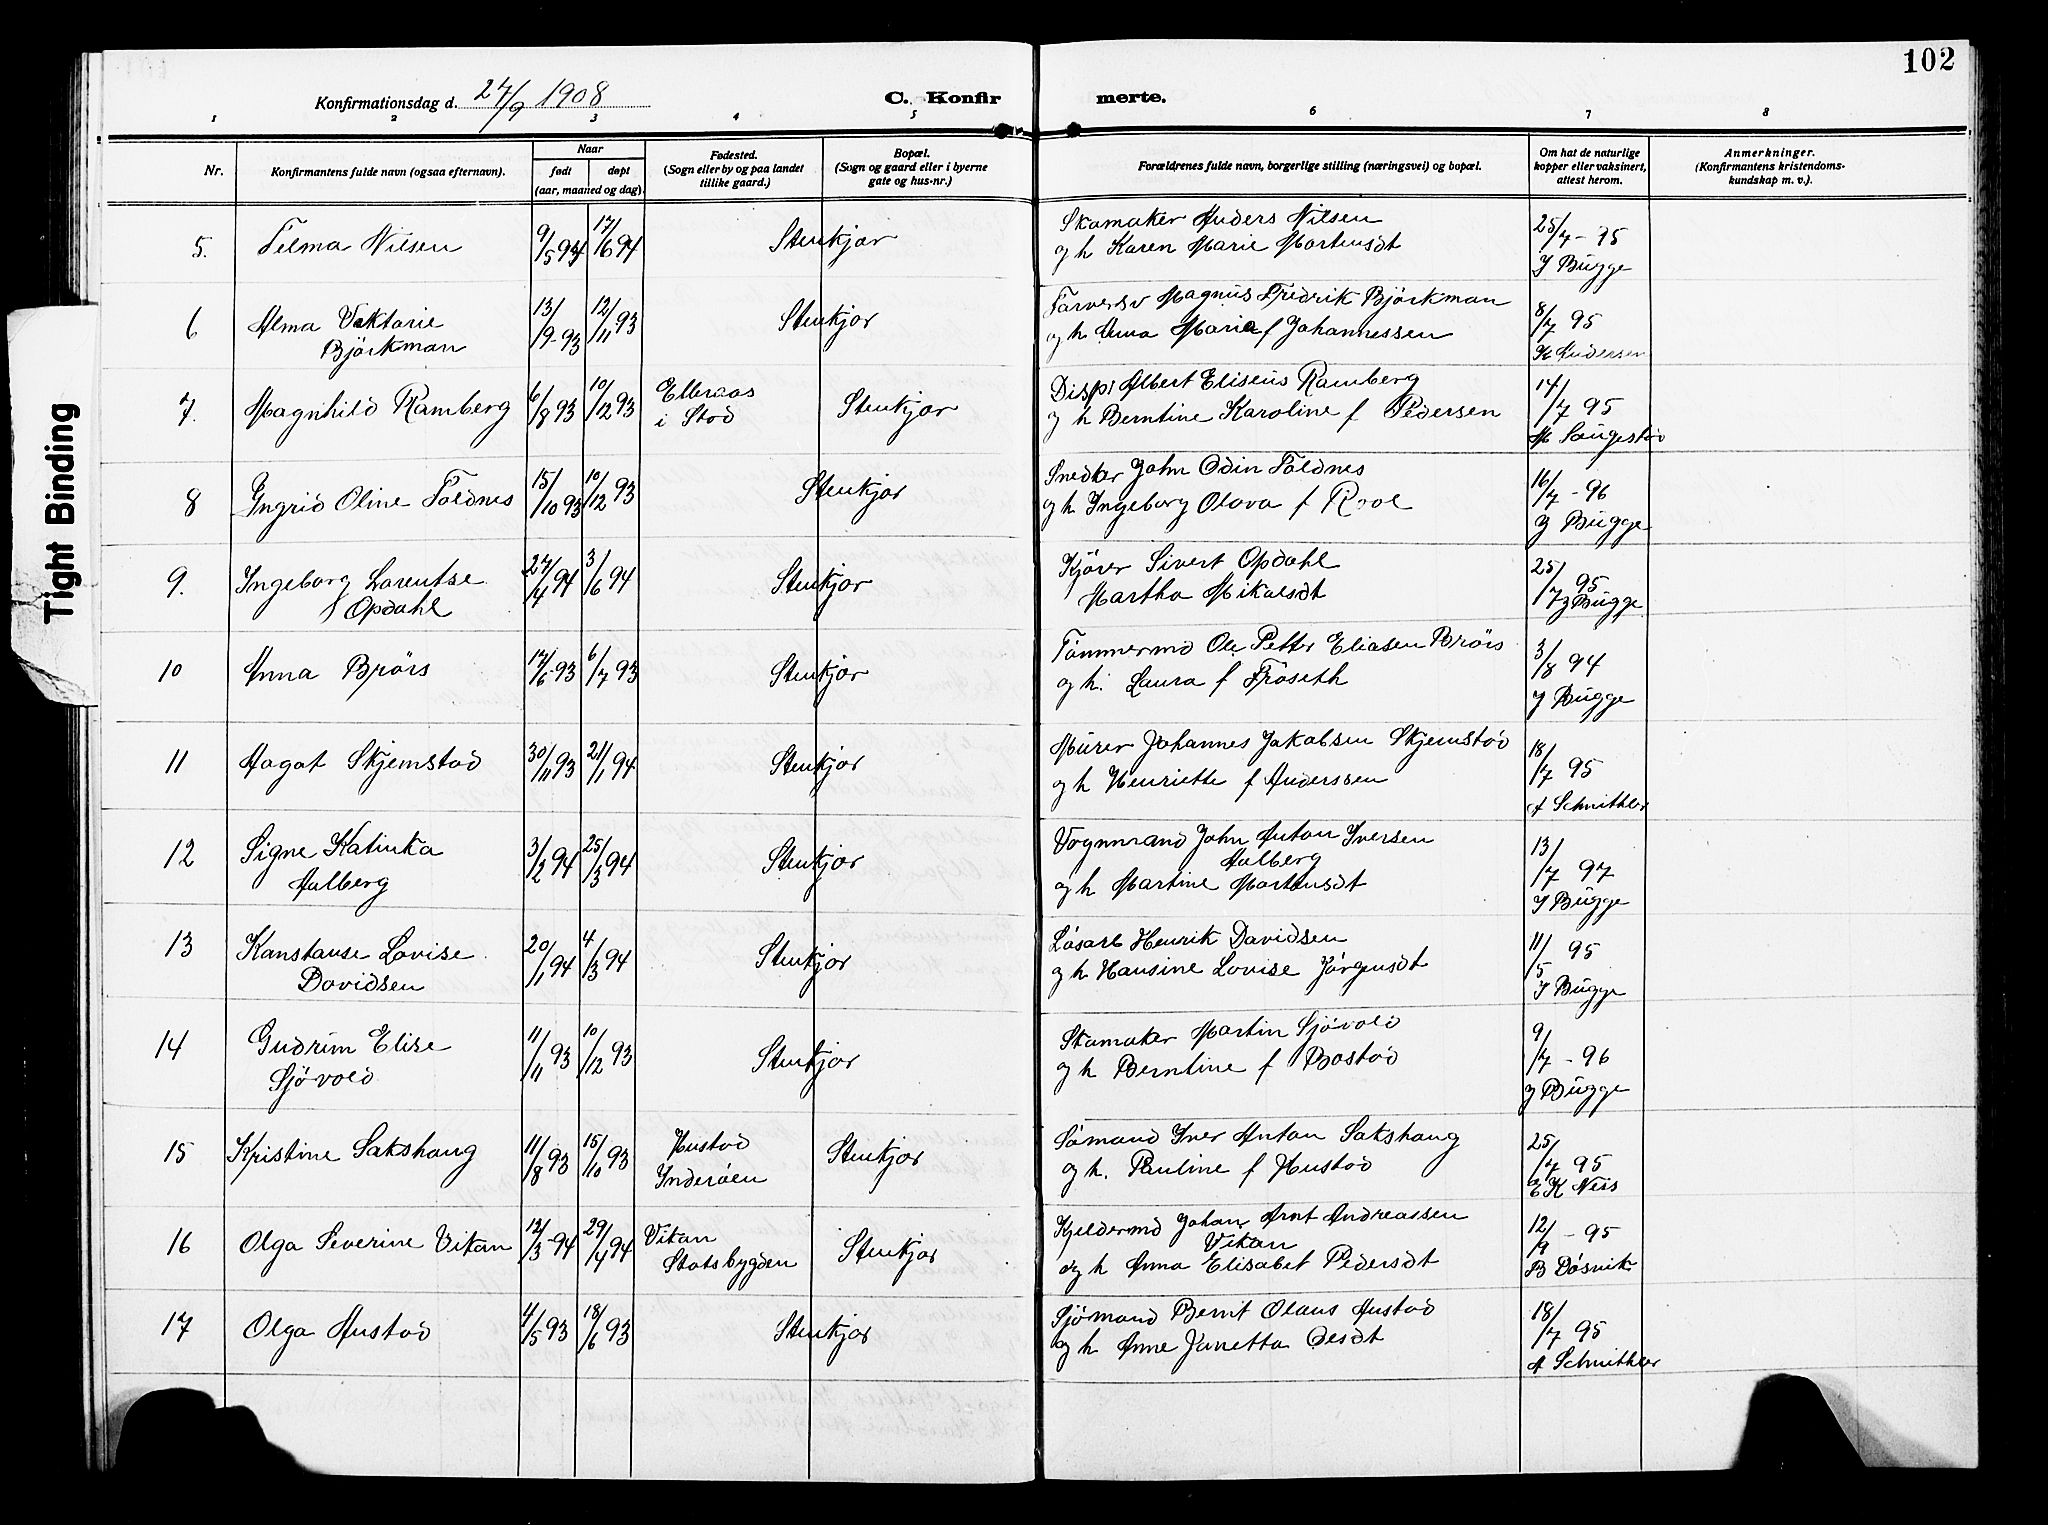 102
Konfirmationsdag d. 27/9 1908
C. Konfirmerte.
1 2 3 4 5 6 7 8
Nr.
Konfirmantens fulde navn (ogsaa efternavn).
Naar
født døpt
(aar, maaned og dag).
Fødested.
(Sogn eller by og paa landet
tillike gaard.)
Bopæl.
(Sogn og gaard eller i byerne
gate og hus-nr.)
Forældrenes fulde navn, borgerlige stilling (næringsvei) og bopæl.
Om hat de naturlige
kopper eller vaksinert,
attest herom.
Anmerkninger.
(Konfirmantens kristendoms-
kundskap m. v.).
Tight Binding
5. Telma Nilsen 9/5 94 17/6 94 Stenkjær
Skomaker Anders Nilsen
og h Karen Marie Martensdt
25/7 - 95
J Bugge
6 Alma Viktorie
Björkman
13/9-93 12/11 93 Stenkjær
Farversv Magnus Fredrik Björkman
og h Anna Marie f Johannessen
8/7 95
K Andersen
7. Magnhild Ramberg 6/8 93 10/12 93
Elleraas
i Stod
Stenkjær
Disp. Albert Eliseus Ramberg
og h Berntine Karoline f Pedersen
14/7 95
M Saugestad
8 Ingrid Oline Foldnes 15/10 93 10/12 93 Stenkjær
Snedker John Odin Foldnes
og h Ingeborg Olava f Rool
16/7 - 96
J Bugge
9. Ingeborg Larentse
Opdahl
27/4 94 3/6 94 Stenkjær
Kjörer Sivert Opdahl
Martha Mikalsdt
25/7 95
J Bugge
10 Anna Brörs 17/6-93 6/7 93 Stenkjær
Tömmermd Ole Petter Eliasen Brörs
og h. Laura f Fröseth
3/8 94
J Bugge
11 Aagot Skjemstad 30/11 93 21/1 94 Stenkjær
Murer Johannes Jakobsen Skjemstad
og h Henriette f Anderssen
18/7 95
A Schnitler
12 Signe Katinka
Aalberg
3/2 94 25/3 94 Stenkjær
Vognmand John Anton Iversen
Aalberg
og h Martine Martensdt
13/7 97
J Bugge
13 Konstanse Lovise
Davidsen
20/1 94 4/3 94 Stenkjær
Lösarb Henrik Davidsen
og h Hansine Lovise Jörgensdt
11/5 95
J Bugge
14 Gudrun Elise
Sjövold
11/11 93 10/12 93 Stenkjær
Skomaker Martin Sjövold
og h Berntine f Bostad
9/7 - 96
J Bugge
15 Kristine Sakshaug 11/8 93 15/10 93
Hustad
Inderöen
Stenkjær
Sömand Iver Anton Sakshaug
og h. Pauline f Hustad
25/7 95
E K Neis
16 Olga Severine Vikan 12/3-94 29/4 94
Vikan
Statsbygden
Stenkjær
Kjeldermd Johan Arnt Andreassen
Vikan
og h Anna Elisabet Pedersdt
12/9 - 95
B Dösvik
17 Olga Austad 4/5 93 18/6 93 Stenkjær
Sjömand Bernt Olaus Austad
og h Anne Janetta Olsdt
18/7 95
A Schnitler